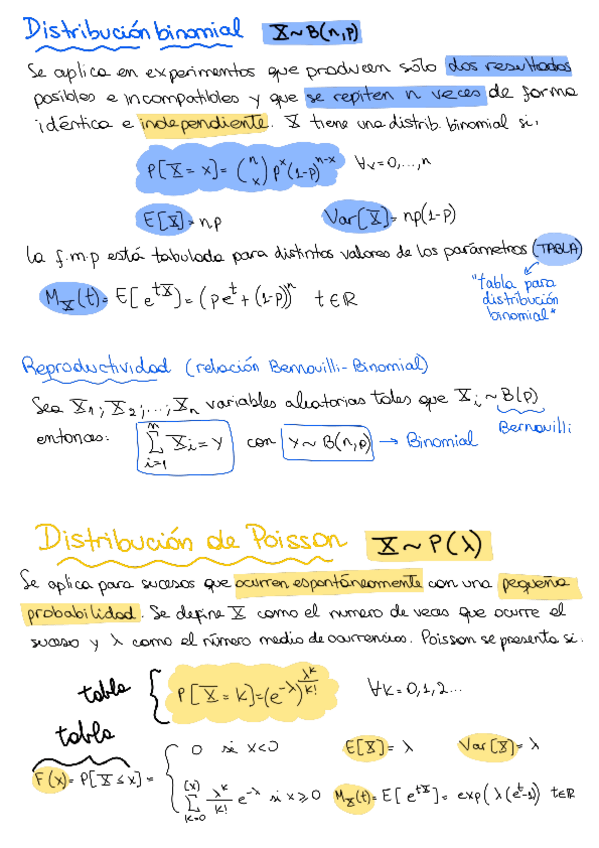 Distribución binomial X~B(n,p)
Se aplica en experimentos que producen sólo dos resultados
posibles e incompatibles y que se repiten n veces de forma
idéntica e independiente. X tiene una distrib. binomial si,
P[X = x] = (n x) p^x (1-p)^(n-x) ∀x=0,...,n
E[X] = np Var[X] = np(1-p)
La f.m.p está tabulada para distintos valores de los parámetros (TABLA)
"tabla para
distribución
binomial"
M_X(t) = E[e^(tX)] = (pe^t + (1-p))^n t∈ℝ
Reproductividad (relación Bernouilli-Binomial)
Sea X₁; X₂; ...; Xₙ variables aleatorias tales que X_i ~ B(p)
Bernouilli
entonces: n ∑ i=1 X_i = Y con Y~B(n,p) → Binomial
Distribución de Poisson X~P(λ)
Se aplica para sucesos que ocurren espontáneamente con una pequeña
probabilidad. Se define X como el numero de veces que ocurre el
suceso y λ como el número medio de ocurrencias. Poisson se presenta si.
tabla { P[X=k]=(e^-λ) λ^k/k! ∀k=0,1,2...
tabla
F(x)=P[X≤x]= { 0 si x<0 E[X]=λ Var[X]=λ
(x) ∑ k=0 λ^k/k! e^-λ si x≥0 M_X(t)=E[e^(tX)]=exp(λ(e^t-1) t∈ℝ